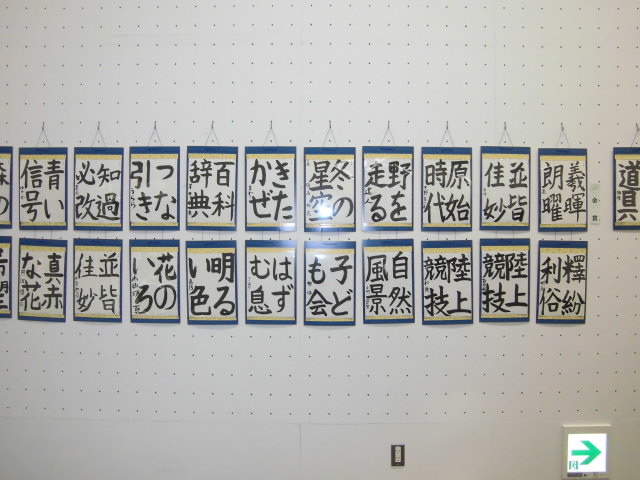 森の
青い
信号
知過
必改
つな
引き
百科
辞典
きた
かぜ
冬の
星空
野を
走る
原始
時代
並皆
佳妙
羲暉
朗曜
金賞
道具
真赤
な花
並皆
佳妙
花の
いろ
明る
い色
はず
む息
子ど
も会
自然
風景
陸上
競技
陸上
競技
釋紛
利俗